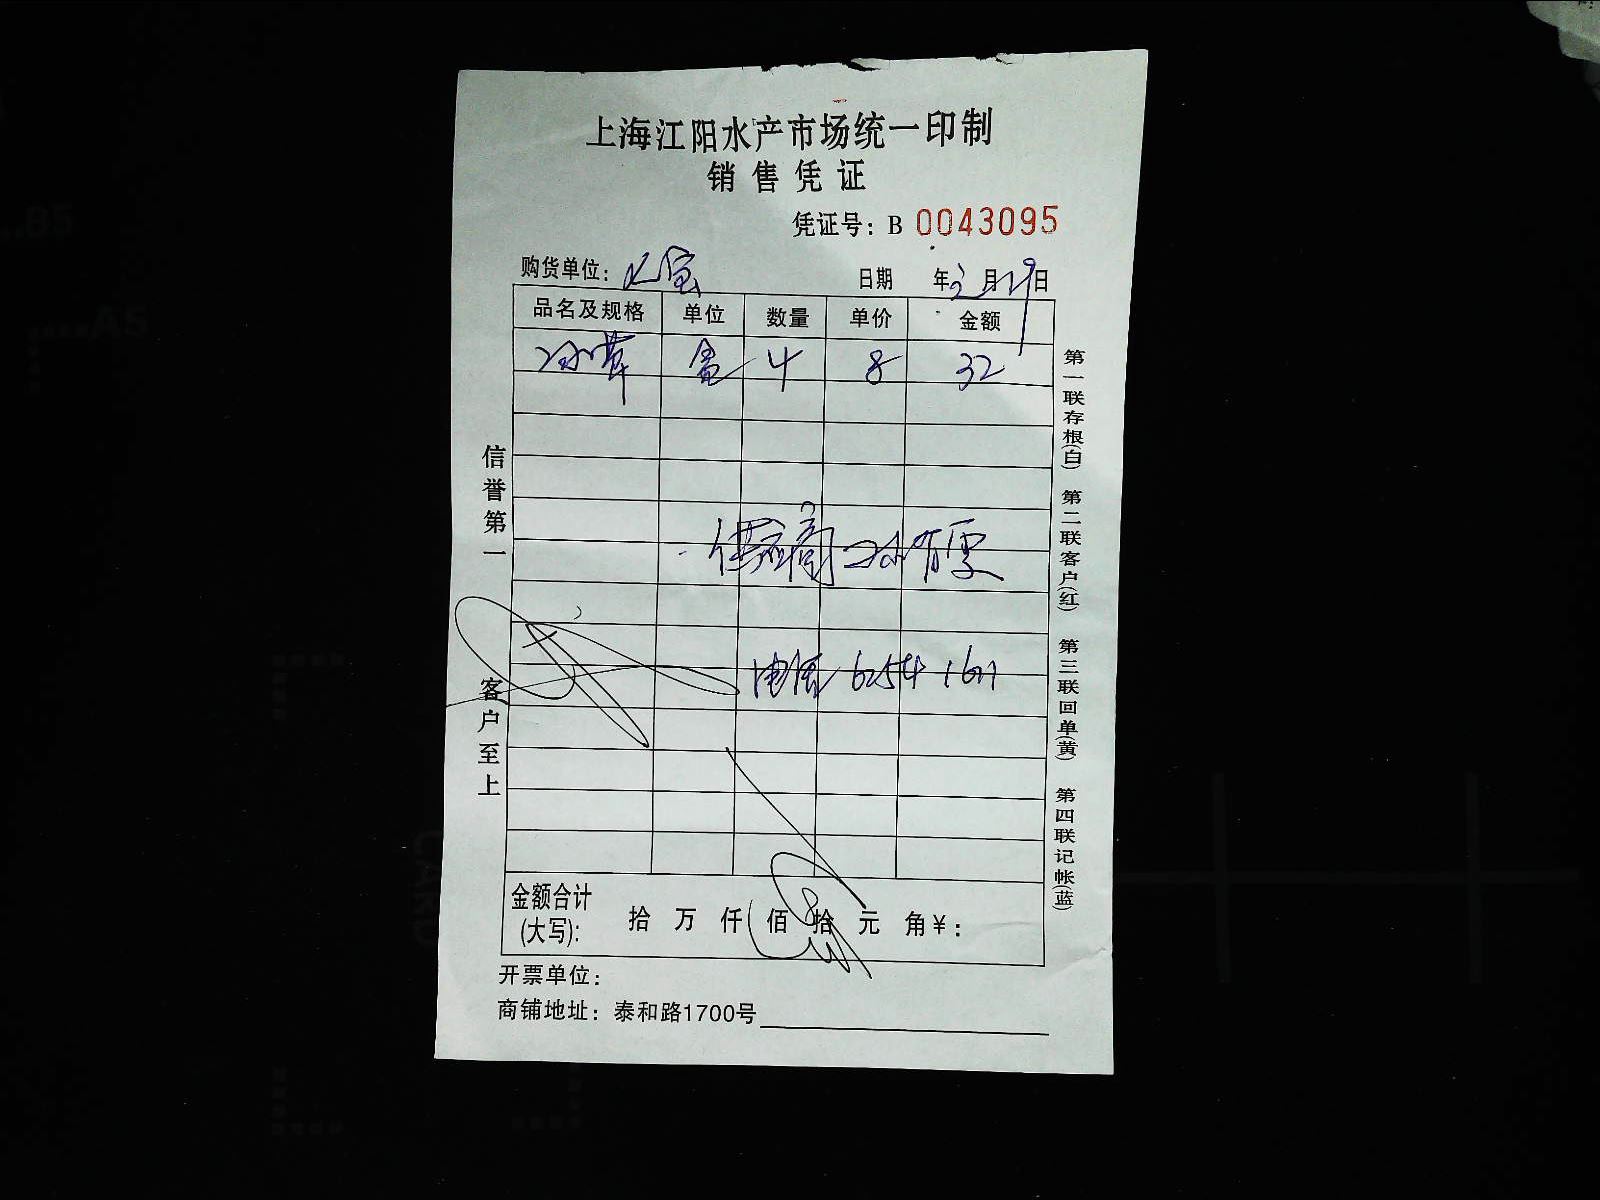 上海江阳水产市场统一印制
销售凭证
凭证号：B 0043095
购货单位：
日期 年 月 日
品名及规格 单位 数量 单价 金额
冰草 盒 4 8 32
供应商
电话
金额合计
(大写)： 拾 万 仟 佰 拾 元 角 ¥：
开票单位：
商铺地址：泰和路1700号
信誉第一 客户至上
第一联存根(白) 第二联客户(红) 第三联回单(黄) 第四联记帐(蓝)